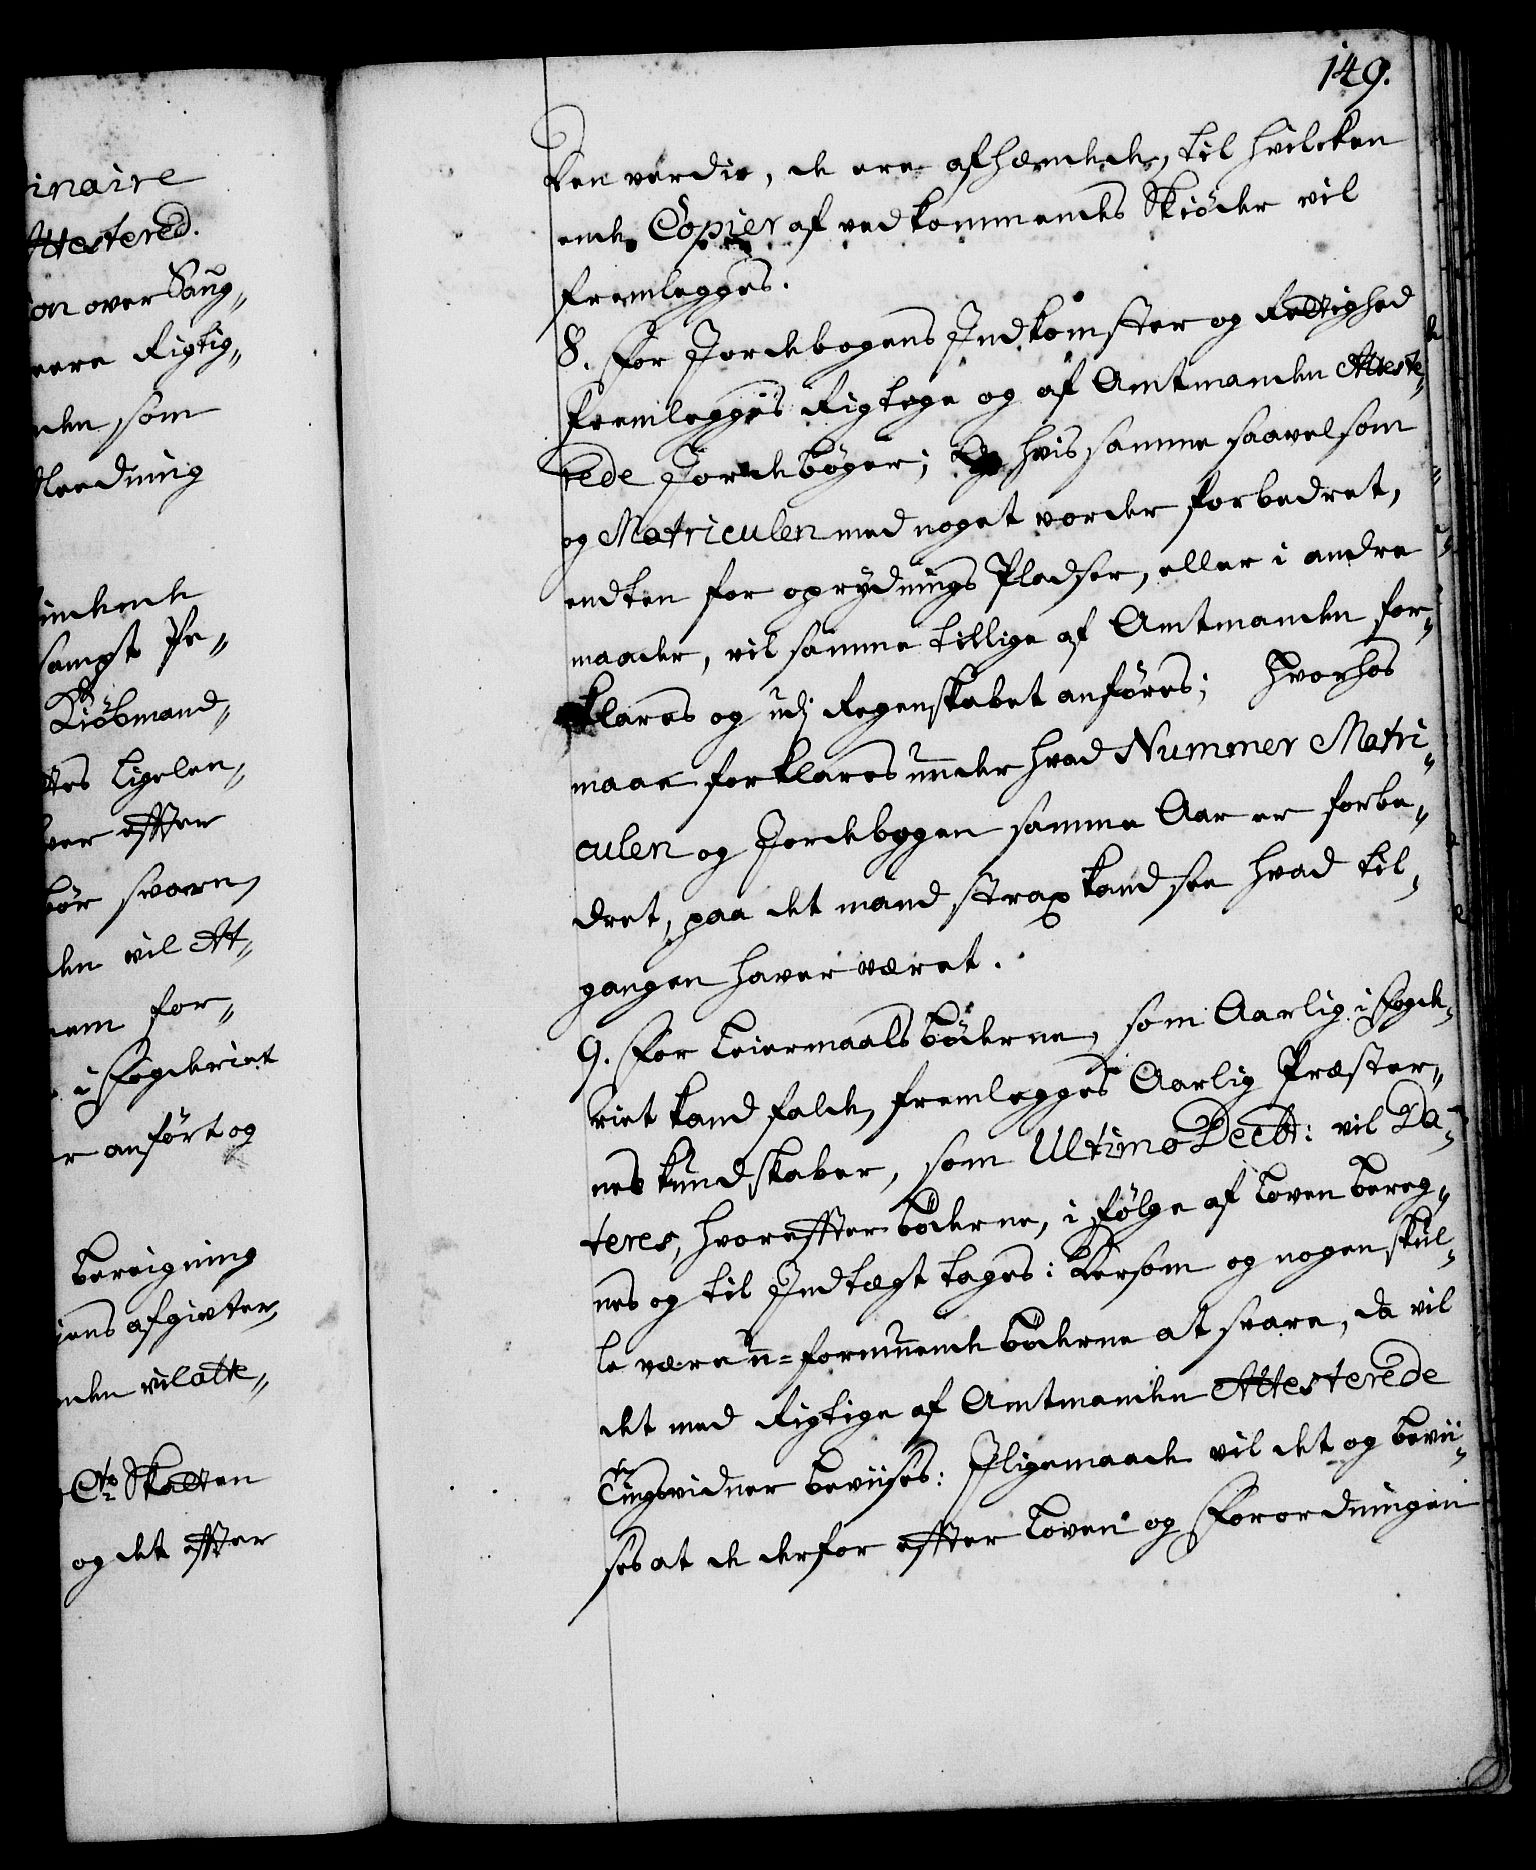 inaire
Attestered.
on over Saug„
ere Rigtig„
den, som
Reedning
indende
sampt Pr„
Kiöbmand„
ttes ligelen„
ver effter
bör svare,
den vil At„
nem for„
i Fogderiet
er anført og
beregning
gens afgivter,
nden vil atte„
Cto Skatten
og det effter
149.
den verdie, de ere afhændede, til hvilcken
ende Copier af vedkommendes Skiöder vil
fremlegges.
8. For Jordebogens Indkomster og Rettighed
fremlegges Rigtige og af Amtmanden Atteste„
rede Jordebøger; hvis samme saavelsom
og Matriculen med noget vorder forbedret,
endten for oprydnings Pladser, eller i andre
maader, vil samme tillige af Amtmanden for„
klares og udj Regenskabet anføres; hvorhos
maae forklares under hvad Nummer Matri„
culen og Jordebogen samme Aar er forbe„
dret, paa det mand strax kand see hvad til„
gangen haver været.
9. For Leiermaals bøderne, som Aarlig i Fogde„
riet kand falde, fremlegges Aarlig Præster„
nes kundskaber, som Ultimo Decbr: vil Da„
teres, hvoreffter bøderne, i følge af Loven bereg„
nes og til Indtægt tages: Dersom og nogen skul„
le være u=formuende bøderne at svare, da vil
det med Rigtige af Amtmanden Attesterede
Tingsvidner beviises: Jligemaade vil det og bevii„
ses at de derfor effter Loven og Forordningen